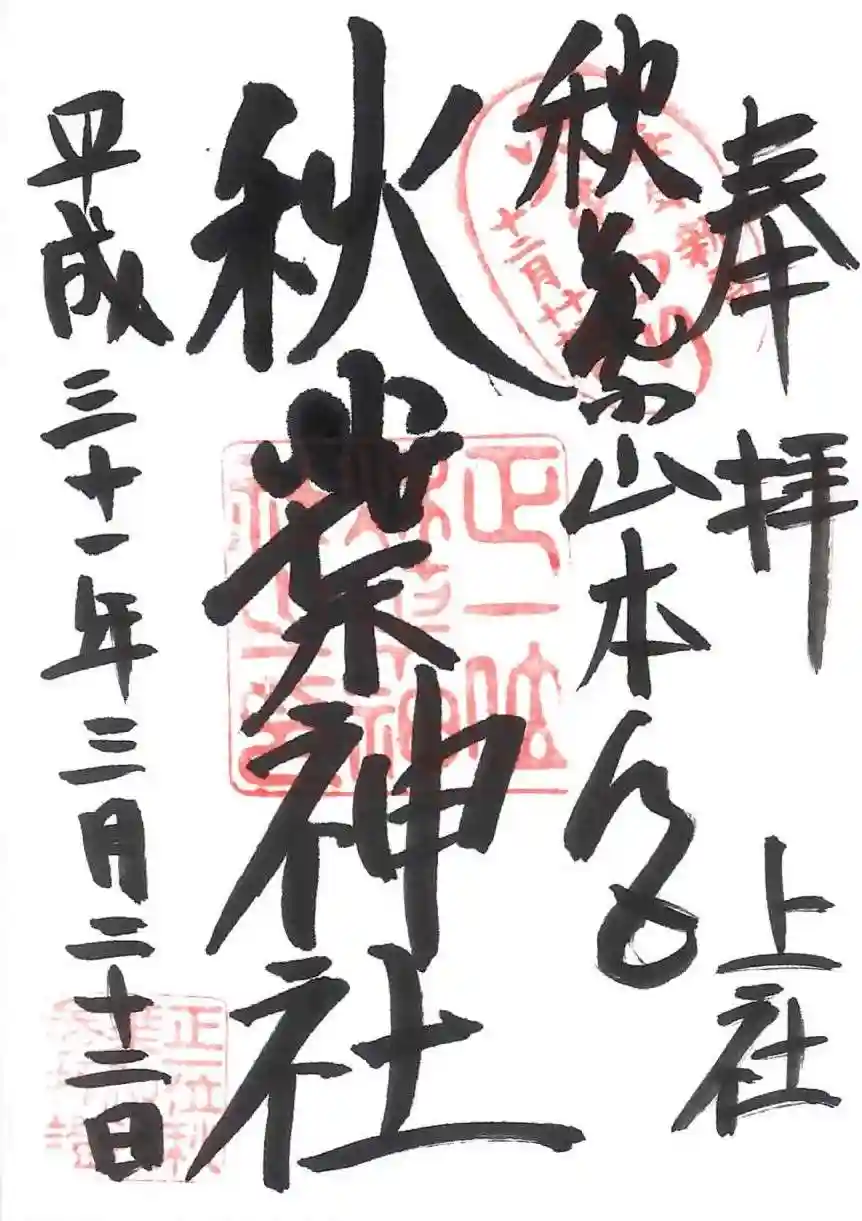 奉拝 上社
秋葉山本宮
秋葉神社
平成三十一年三月二十二日
正一位
秋葉神
社之璽
十二月
正一位秋